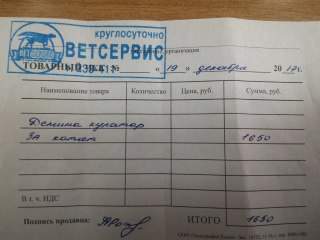 круглосуточно
ВЕТСЕРВИС
организация
ТОВАРНЫЙ ЧЕК № « 19 » декабря 2017 г.
Наименование товара Количество Цена, руб. Сумма, руб.
Демина куратор
За котят 1650
В т. ч. НДС
Подпись продавца: ИТОГО 1650